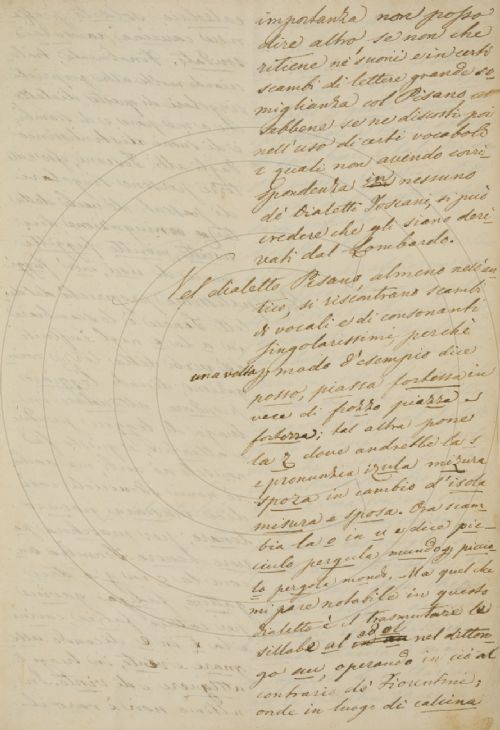 importanza non posso
dire altro se non che
ritiene ne' suoni e in certi
scambi di lettere grande so
miglianza col Pisano,
sebbene se ne discosti poi
nell'uso di certi vocaboli
i quali non avendo corri
spondenza in nessuno
de' dialetti Toscani, si può
credere che gli siano deri
vati dal Lombardo.
Nel dialetto Pisano, almeno nell'an
tico, si riscontrano scambi
di vocali e di consonanti
singolarissimi, perchè
una volta a modo d'esempio dice
posso, piassa fortessa in
vece di pozzo piazza e
fortezza; tal altra pone
la z dove andrebbe la s
e pronunzia izula mizura
spoza in cambio d'isola
misura e sposa. Ora scam
bia la o in u e dice pic
ciulo pergula mundo per piccio
lo pergola mondo. Ma quel che
mi pare notabile in questo
dialetto è il trasmutare le
sillabe al ad ol nel ditton
go au, operando in ciò al
contrario de' Fiorentini;
onde in luogo di calcina